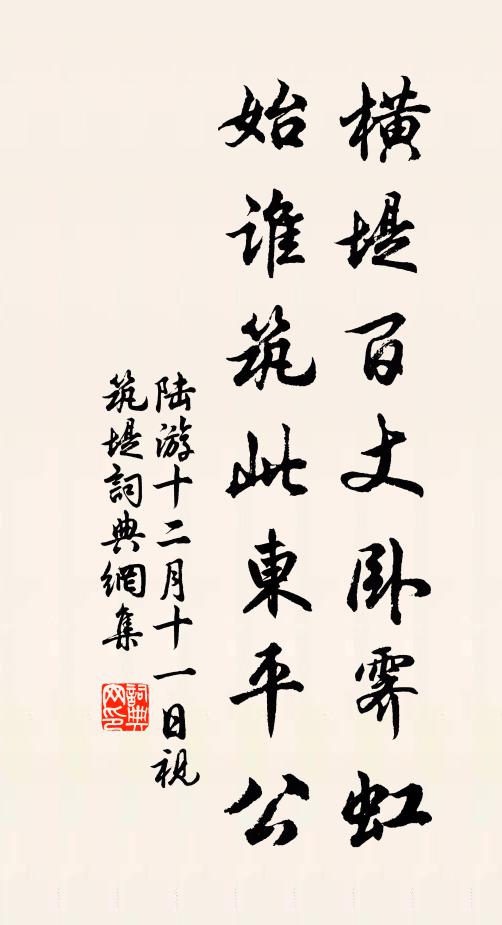 横堤百丈卧霁虹
始谁筑此東平公
陆游十二月十一日視
筑堤詞典網集
詞典网印